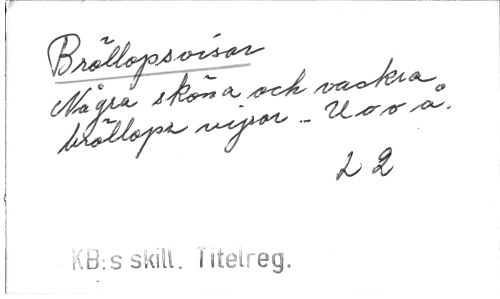 Bröllopsvisor
Några sköna och vackra
bröllops visor - U o o å.
L 2
KB:s skill. Titelreg.